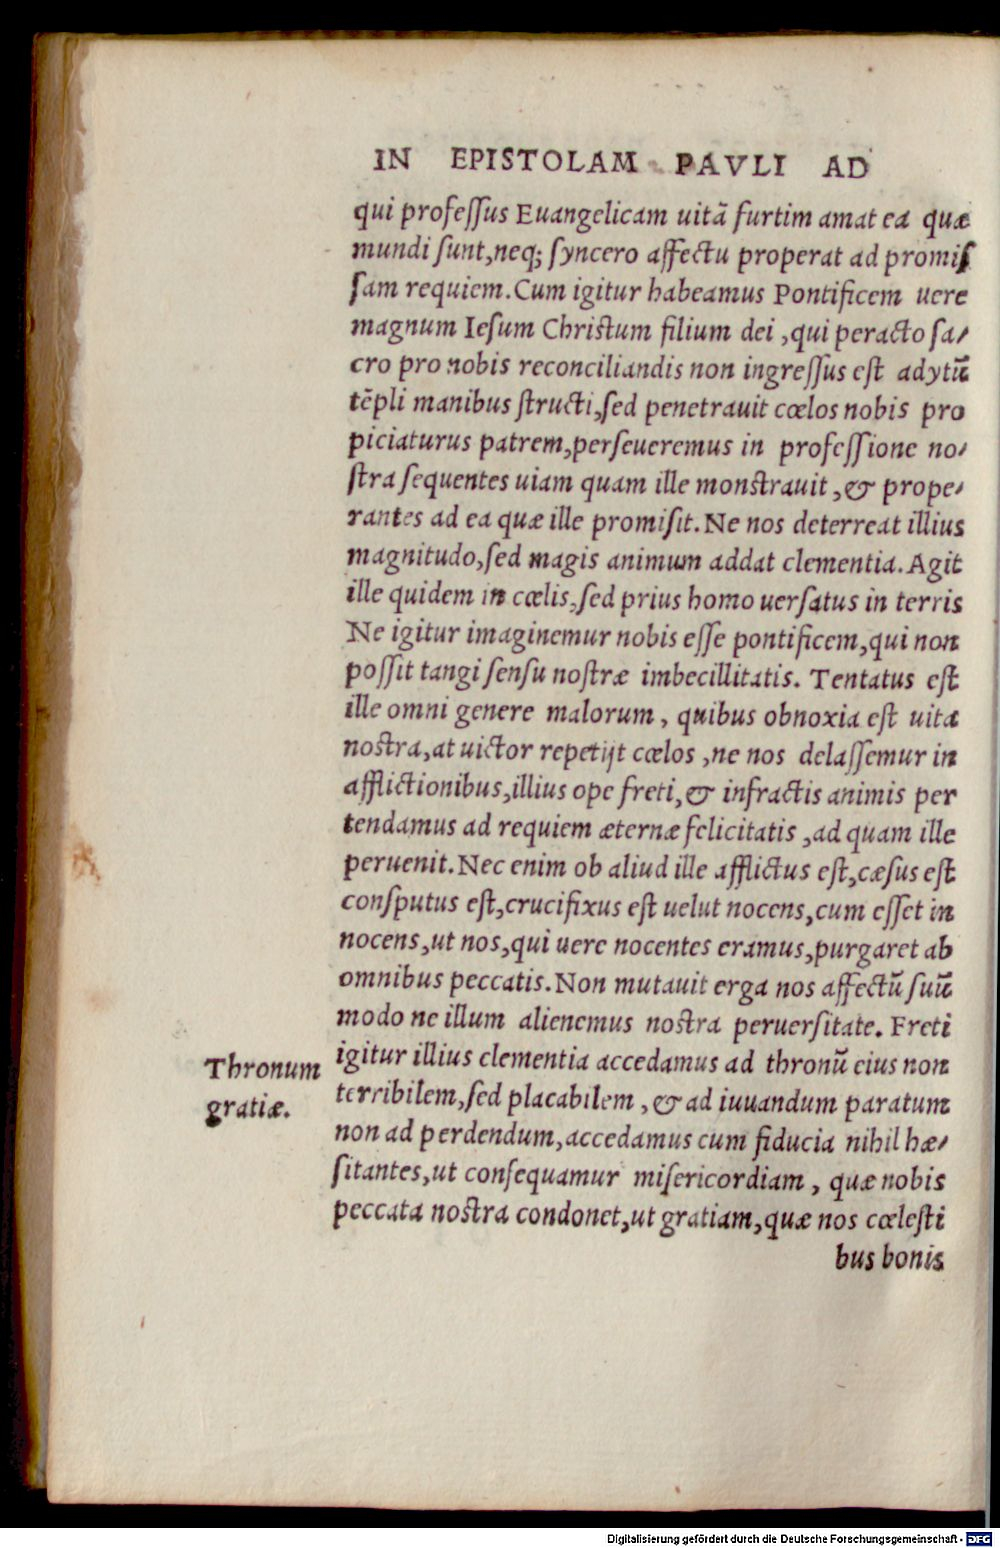 IN EPISTOLAM PAVLI AD
qui professus Euangelicam uitã furtim amat ea quæ
mundi sunt,neq; syncero affectu properat ad promis
sam requiem.Cum igitur habeamus Pontificem uere
magnum Iesum Christum filium dei ,qui peracto sa/
cro pro nobis reconciliandis non ingressus est adytũ
tẽpli manibus structi,sed penetrauit cœlos nobis pro
piciaturus patrem,perseueremus in professione no/
stra sequentes uiam quam ille monstrauit ,& prope/
rantes ad ea quæ ille promisit.Ne nos deterreat illius
magnitudo,sed magis animum addat clementia.Agit
ille quidem in cœlis,sed prius homo uersatus in terris
Ne igitur imaginemur nobis esse pontificem,qui non
possit tangi sensu nostræ imbecillitatis. Tentatus est
ille omni genere malorum , quibus obnoxia est uita
nostra,at uictor repetijt cœlos ,ne nos delassemur in
afflictionibus,illius ope freti,& infractis animis per
tendamus ad requiem æternæ felicitatis ,ad quam ille
peruenit.Nec enim ob aliud ille afflictus est,cæsus est
consputus est,crucifixus est uelut nocens,cum esset in
nocens,ut nos,qui uere nocentes eramus,purgaret ab
omnibus peccatis.Non mutauit erga nos affectũ suũ
modo ne illum alienemus nostra peruersitate. Freti
igitur illius clementia accedamus ad thronũ eius non
Thronum
gratiæ.
terribilem,sed placabilem ,& ad iuuandum paratum
non ad perdendum,accedamus cum fiducia nihil hæ/
sitantes,ut consequamur misericordiam , quæ nobis
peccata nostra condonet,ut gratiam,quæ nos cœlesti
bus bonis
Digitalisierung gefördert durch die Deutsche Forschungsgemeinschaft - DFG